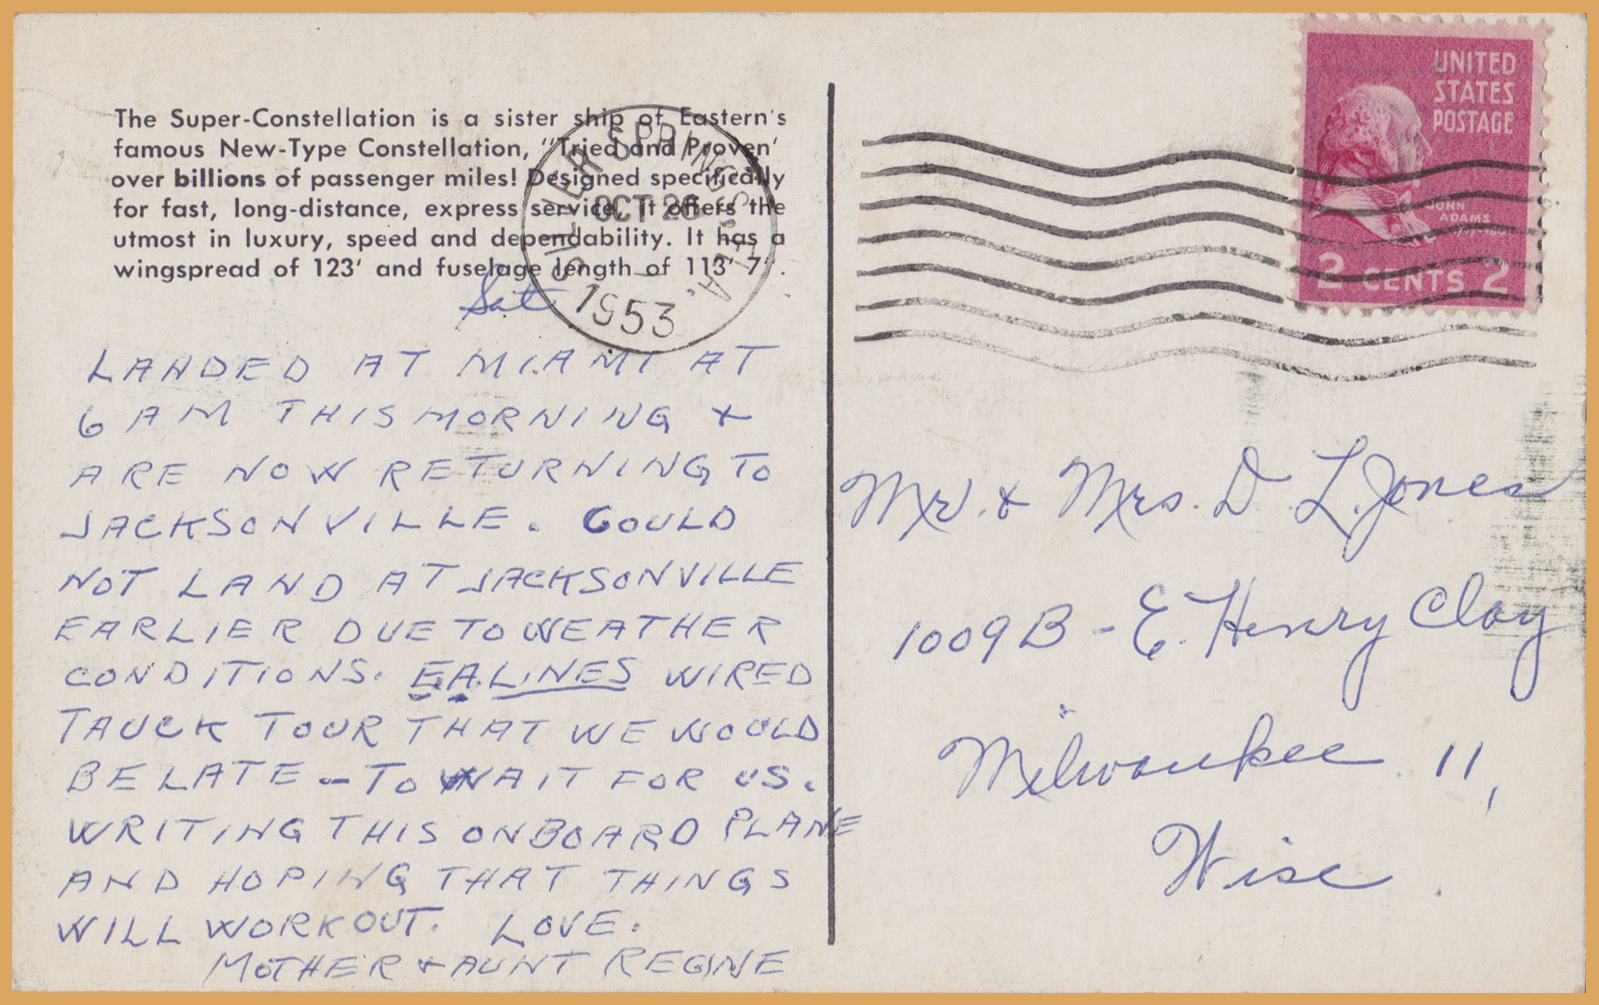 The Super-Constellation is a sister ship of Eastern's
famous New-Type Constellation, "Tried and Proven'
over billions of passenger miles! Designed specifically
for fast, long-distance, express service. It offers the
utmost in luxury, speed and dependability. It has a
wingspread of 123' and fuselage length of 113' 7".
SILVER SPRINGS FLA.
OCT 26
1953
UNITED
STATES
POSTAGE
JOHN
ADAMS
2 CENTS 2
Sat
LANDED AT MIAMI AT
6 AM THIS MORNING +
ARE NOW RETURNING TO
JACKSONVILLE. COULD
NOT LAND AT JACKSONVILLE
EARLIER DUE TO WEATHER
CONDITIONS. EA.LINES WIRED
TAUCK TOUR THAT WE WOULD
BE LATE - TO WAIT FOR US.
WRITING THIS ONBOARD PLANE
AND HOPING THAT THINGS
WILL WORK OUT. LOVE.
MOTHER + AUNT REGINE
Mr. & Mrs. D. L. Jones
1009B - E. Henry Clay
Milwaukee 11,
Wisc.